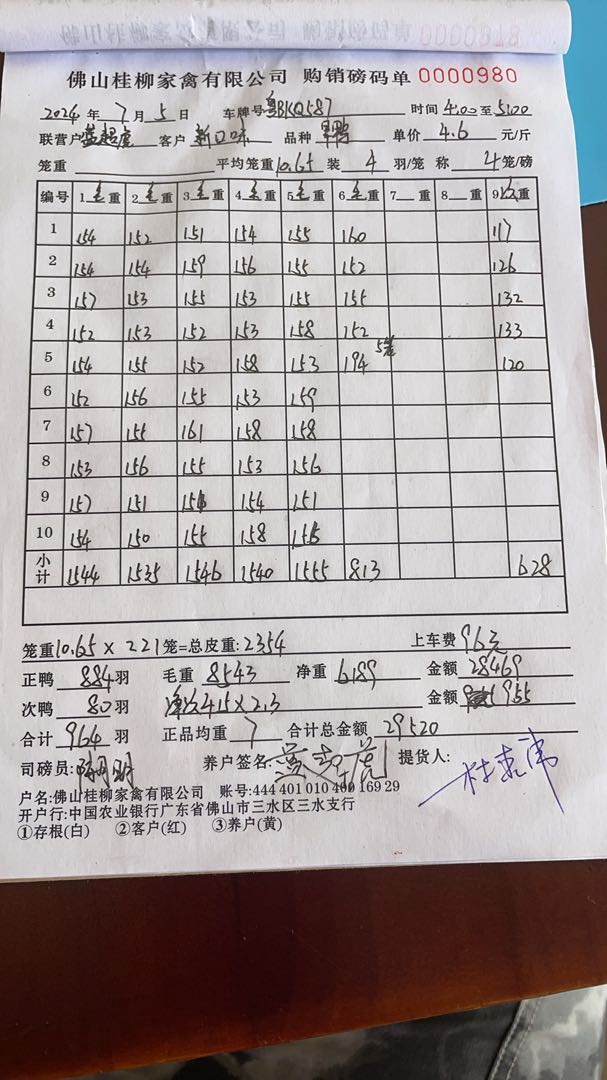 佛山桂柳家禽有限公司 购销磅码单 0000980
2024年7月5日 车牌号 粤BKQ587 时间 4:00至5:00
联营户 客户 新口味 品种 单价 4.6 元/斤
笼重 平均笼重10.65 装 4 羽/笼 称 4笼/磅
编号 1毛重 2毛重 3毛重 4毛重 5毛重 6毛重 7重 8重 9次重
1 154 152 151 154 155 160 117
2 154 154 159 156 155 152 126
3 157 153 155 153 155 155 132
4 152 153 152 153 158 152 133
5 154 155 152 158 153 194 5笼 120
6 152 156 155 153 159
7 157 155 161 158 158
8 153 156 155 153 156
9 157 151 151 154 151
10 154 150 155 158 155
小计 1544 1535 1546 1540 1555 813 628
笼重10.65×221笼=总皮重:2354 上车费96元
正鸭 884羽 毛重 8543 净重 6189 金额 28469
次鸭 80羽 净次415×2.3 金额 955
合计 964羽 正品均重 7 合计总金额 29520
司磅员: 养户签名: 提货人:
户名:佛山桂柳家禽有限公司 账号:444 401 010 400 169 29
开户行:中国农业银行广东省佛山市三水区三水支行
①存根(白) ②客户(红) ③养户(黄)